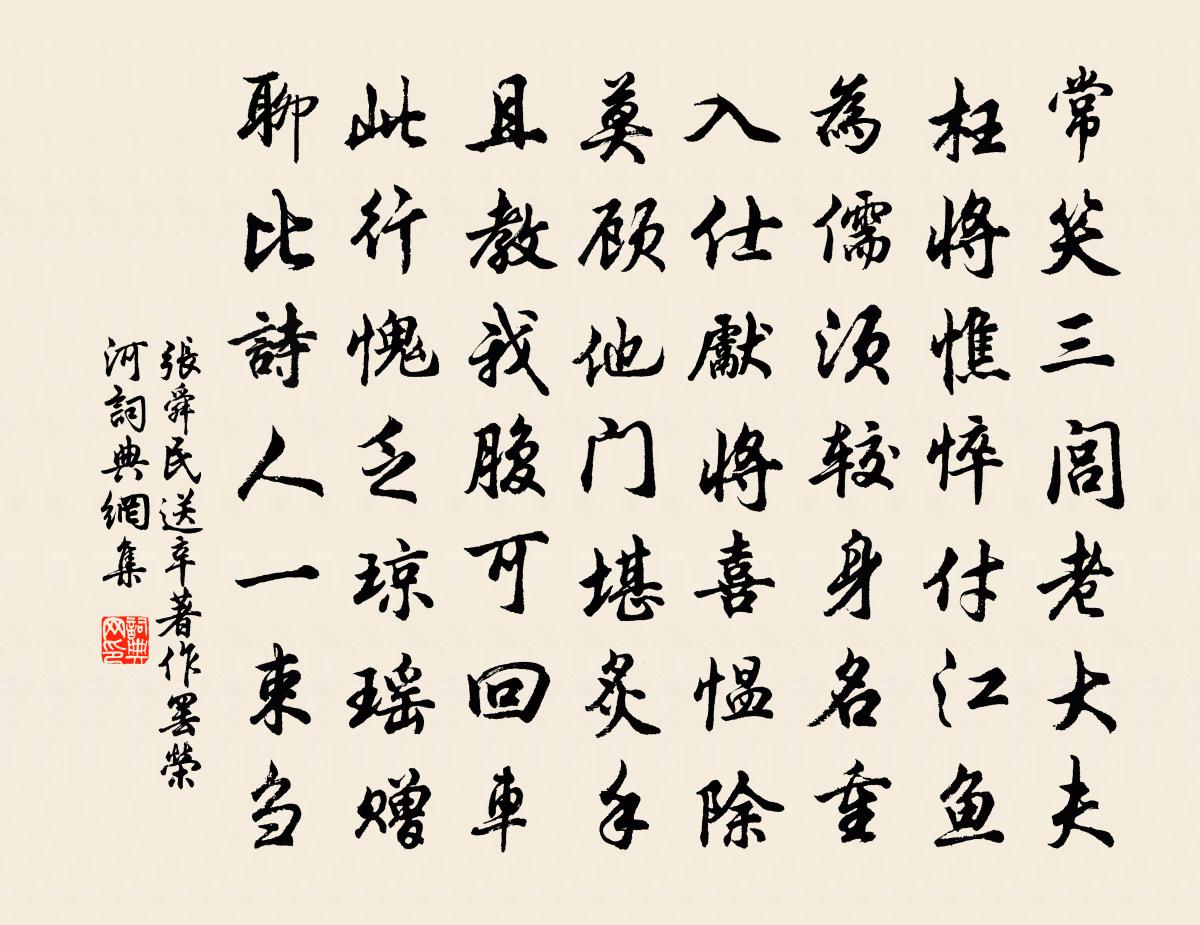 常笑三閭老大夫
枉將憔悴付江魚
為儒須較身名重
入仕獻將喜愠除
莫顧他門堪炙手
且教我腹可回車
此行愧乏琼瑤贈
聊比詩人一束芻
張舜民送辛著作罷榮
河詞典網集
詞典網印